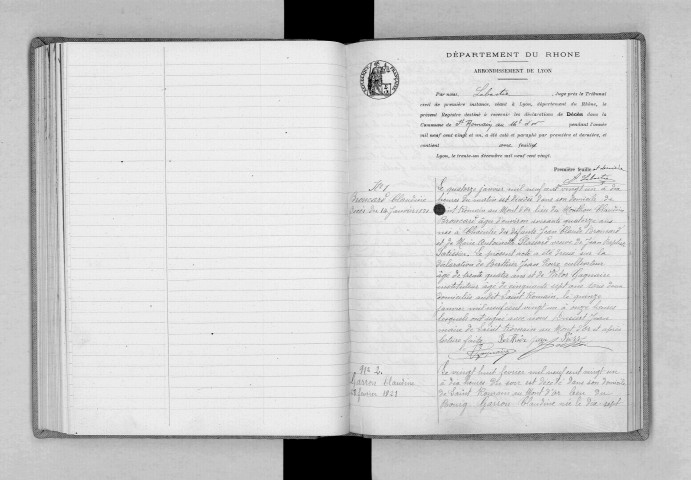 DÉPARTEMENT DU RHONE
ARRONDISSEMENT DE LYON
Par nous, Juge près le Tribunal
civil de première instance, séant à Lyon, département du Rhône, le
présent Registre destiné à recevoir les déclarations de Décès dans la
Commune de St Romain au Mt d'or pendant l'année
mil neuf cent vingt et un, a été coté et paraphé par première et dernière, et
contient onze feuillets
Lyon, le trente-un décembre mil neuf cent vingt.
Première feuille et dernière
No 1
Claudine
Décès du 14 Janvier 1921
Le quatorze janvier mil neuf cent vingt un à dix
heures du matin est décédée dans son domicile de
Saint Romain au Mont d'Or lieu du Claudine
âgée d'environ soixante quatorze ans
née à des défunts Jean Claude
et de Marie Antoinette veuve de Jean
Le présent acte a été dressé sur la
déclaration de Berthier Jean Pierre, cultivateur
âgé de trente quatre ans et de Victor
instituteur âgé de cinquante sept ans tous deux
domiciliés audit Saint Romain, le quinze
janvier mil neuf cent vingt un à onze heures
lesquels ont signé avec nous
maire de Saint Romain au Mont d'Or et après
lecture faite Berthier Jean Pierre
No 2.
Garron Claudine
février 1921
Le vingt huit février mil neuf cent vingt un
à dix heures du soir est décédé dans son domicile
de Saint Romain au Mont d'or lieu du
Bourg Garron Claudine née le dix-sept